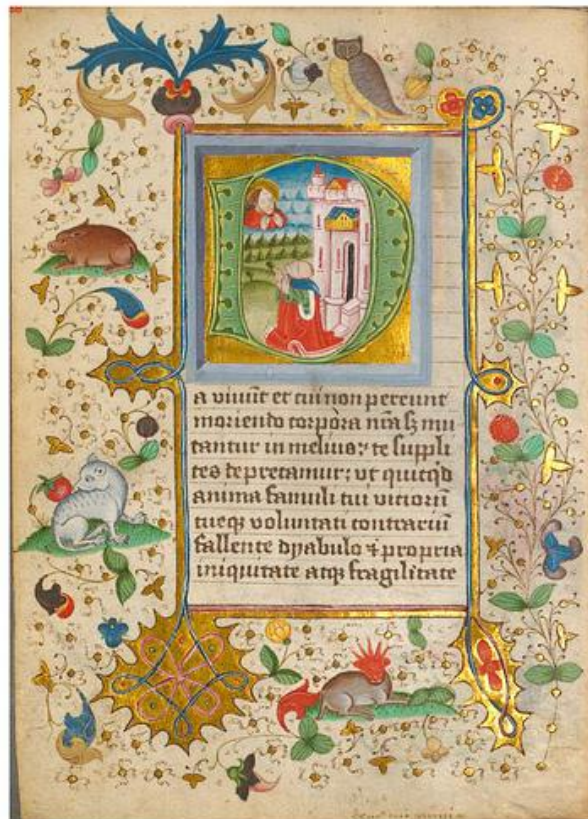 D
a viuūt et cui non pereunt
moriendo corpora nr̄a sꝫ mu
tantur in melius: te suppli
ces deprecamur: vt quitq̇d
anima famuli tui vitiorū
tueqꝫ voluntati contrariū
fallente dyabulo ⁊ propria
iniquitate atqꝫ fragilitate